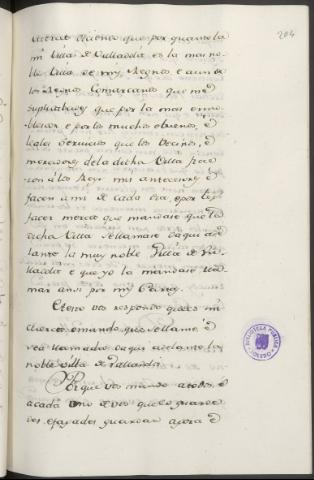 204
merced diciendo que por quanto la
mi Villa de Valladolid es la mas no-
ble Villa de mis Reynos e aun de
los Reynos Comarcanos que me
suplicabays que por la mas enno-
blecer e por los muchos e buenos, e
leales servicios que los Vecinos, e
moradores de la dicha Villa ficie-
ron a los Reyes mis antecesores, e
facen a mi de cada dia, e por les
facer merced que mandase que la
dicha Villa se llamase de aqui ade
lante la muy noble Villa de Va-
lladolid e que yo la mandase lla-
mar ansi por mis Cartas
A esto vos respondo que es mi
merced e mando que se llame, e
sea llamada de aqui adelante la
noble Villa de Valladolid
Porque vos mando a todos, e
a cada uno de vos que lo guarde-
des, e fagades guardar agora e
BIBLIOTECA PUBLICA
TOLEDO